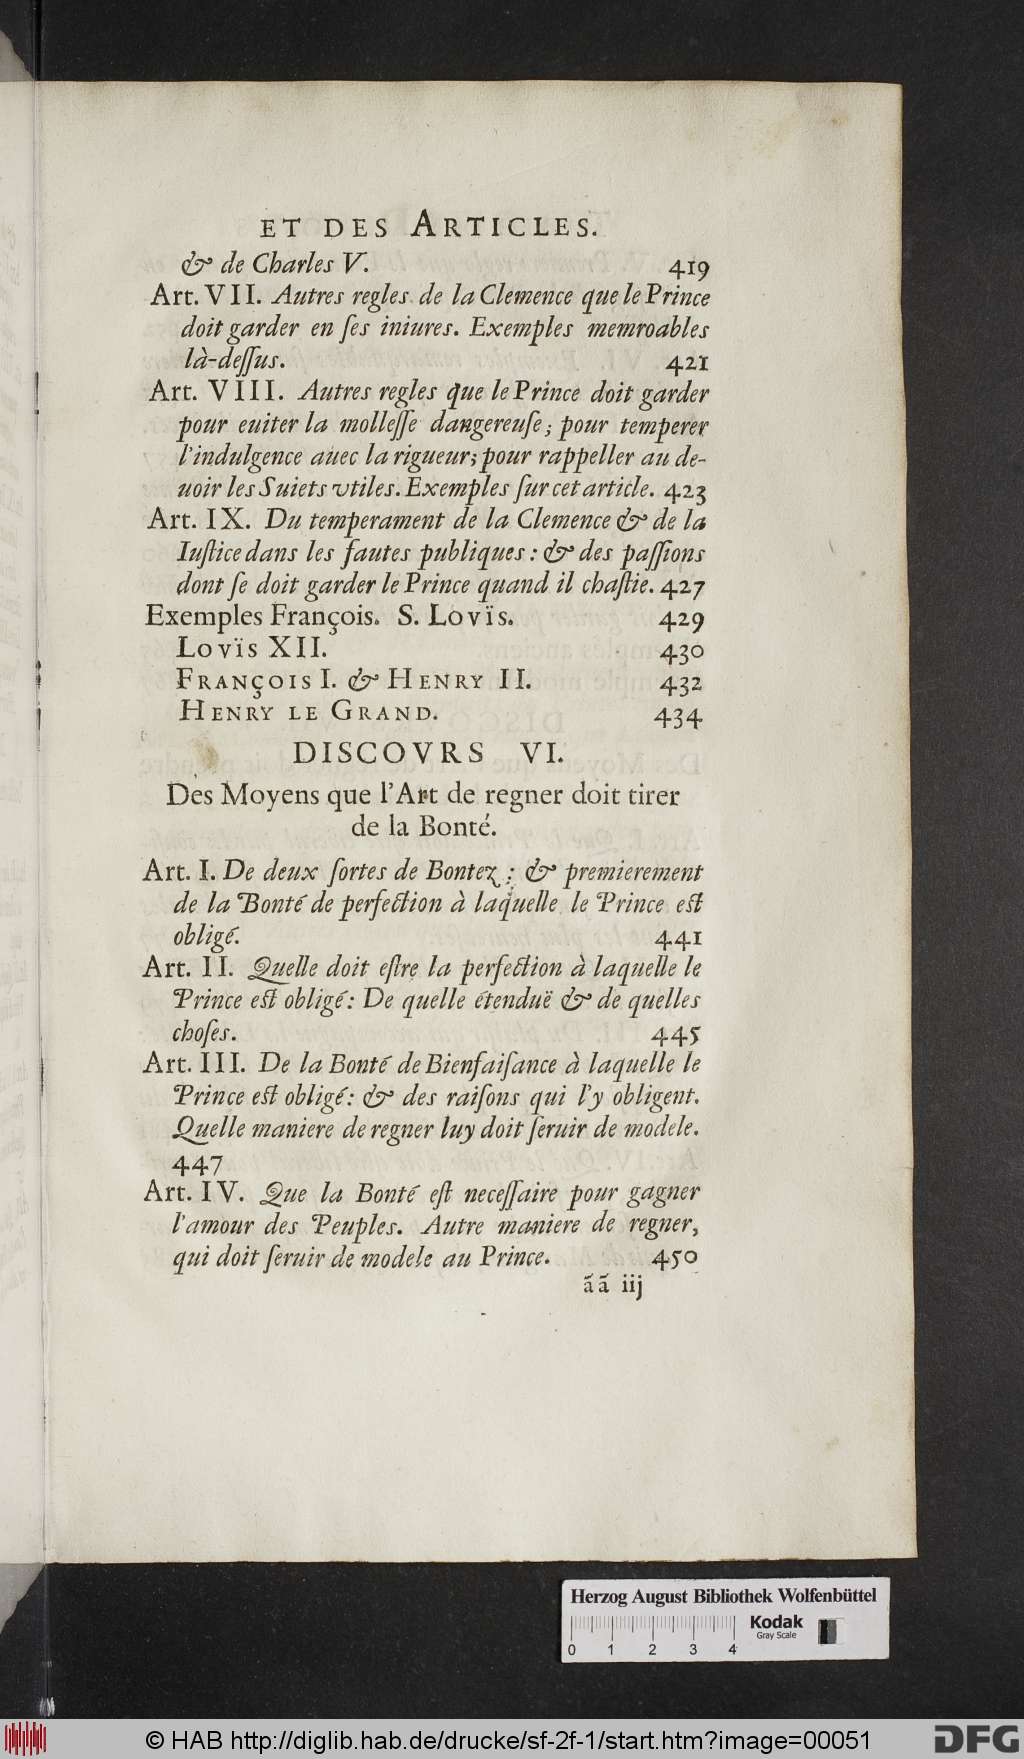 ET DES ARTICLES.
& de Charles V. 419
Art. VII. Autres regles de la Clemence que le Prince
doit garder en ſes iniures. Exemples memroables
là-deſſus. 421
Art. VIII. Autres regles que le Prince doit garder
pour euiter la molleſſe dangereuſe; pour temperer
l'indulgence auec la rigueur; pour rappeller au de-
uoir les Suiets vtiles. Exemples ſur cet article. 423
Art. IX. Du temperament de la Clemence & de la
Iuſtice dans les fautes publiques: & des paſſions
dont ſe doit garder le Prince quand il chaſtie. 427
Exemples François. S. Lovïs. 429
Lovïs XII. 430
FRANÇOIS I. & HENRY II. 432
HENRY LE GRAND. 434
DISCOVRS VI.
Des Moyens que l'Art de regner doit tirer
de la Bonté.
Art. I. De deux ſortes de Bontez: & premierement
de la Bonté de perfection à laquelle le Prince eſt
obligé. 441
Art. II. Quelle doit eſtre la perfection à laquelle le
Prince eſt obligé: De quelle étenduë & de quelles
choſes. 445
Art. III. De la Bonté de Bienfaiſance à laquelle le
Prince eſt obligé: & des raiſons qui l'y obligent.
Quelle maniere de regner luy doit ſeruir de modele.
447
Art. IV. Que la Bonté eſt neceſſaire pour gagner
l'amour des Peuples. Autre maniere de regner,
qui doit ſeruir de modele au Prince. 450
ãã iij
Herzog August Bibliothek Wolfenbüttel
Kodak
Gray Scale
0 1 2 3 4
© HAB http://diglib.hab.de/drucke/sf-2f-1/start.htm?image=00051
DFG